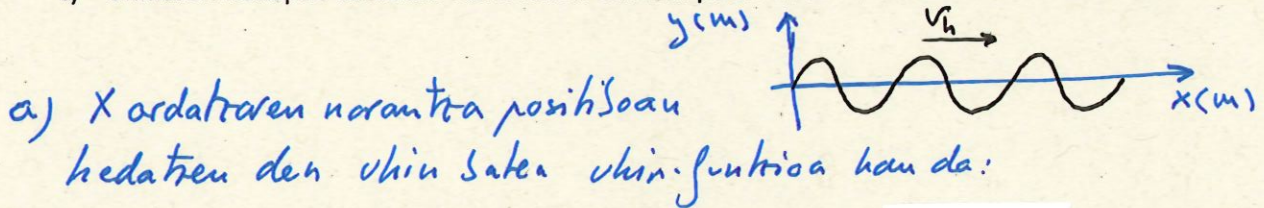 y(m)
Vh
x(m)
a) X ardatzaren norantza positiboan
hedatzen den uhin baten uhin-funtzioa hau da: